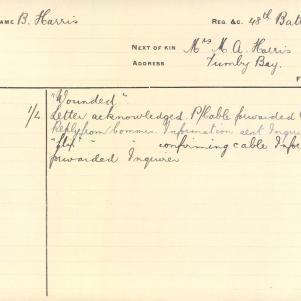 NAME B. Harris REG. &C. 48th Batt
NEXT OF KIN Mrs M. A. Harris
ADDRESS Tumby Bay.
F
"Wounded"
1/4 Letter acknowledged. P/Cable forwarded
Reply from Commr. Information sent Inquirer
" " confirming cable Infor
forwarded Inquirer